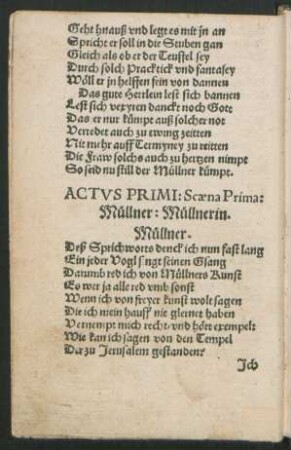 Geht hnauß vnd legt es mit jn an
Spricht er soll in die Stuben gan
Gleich als ob er der Teuffel sey
Durch solch Practick vnd fantasey
Wöll er jn helffen fein von dannen
Das gute Herrlein lest sich bannen
Lest sich vexyren danckt noch Gott
Das er nur kümpt auß solcher not
Verredet auch zu ewing zeitten
Nit mehr auff Termyney zu reitten
Die Fraw solchs auch zu hertzen nimpt
So seid nu still der Müllner kümpt.
ACTVS PRIMI: Scæna Prima:
Müllner: Müllnerin.
Müllner.
Deß Sprichworts denck ich nun fast lang
Ein jeder Vogl singt seinen Gsang
Darumb red ich von Müllners Kunst
Es wer ja alle red vmb sonst
Wenn ich von freyer kunst wolt sagen
Die ich mein hauff nie glernet haben
Vernempt mich recht vnd hört exempel:
Wie kan ich sagen von den Tempel
Der zu Jerusalem gestanden?
Ich